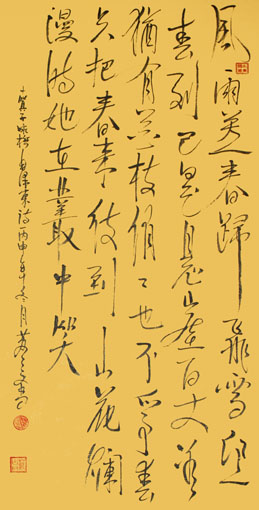 風雨送春歸飛雪迎
春到已是懸崖百丈冰
猶有花枝俏俏也不爭春
只把春來報待到山花爛
漫時她在叢中笑
卜算子咏梅毛澤東詩丙申年冬月